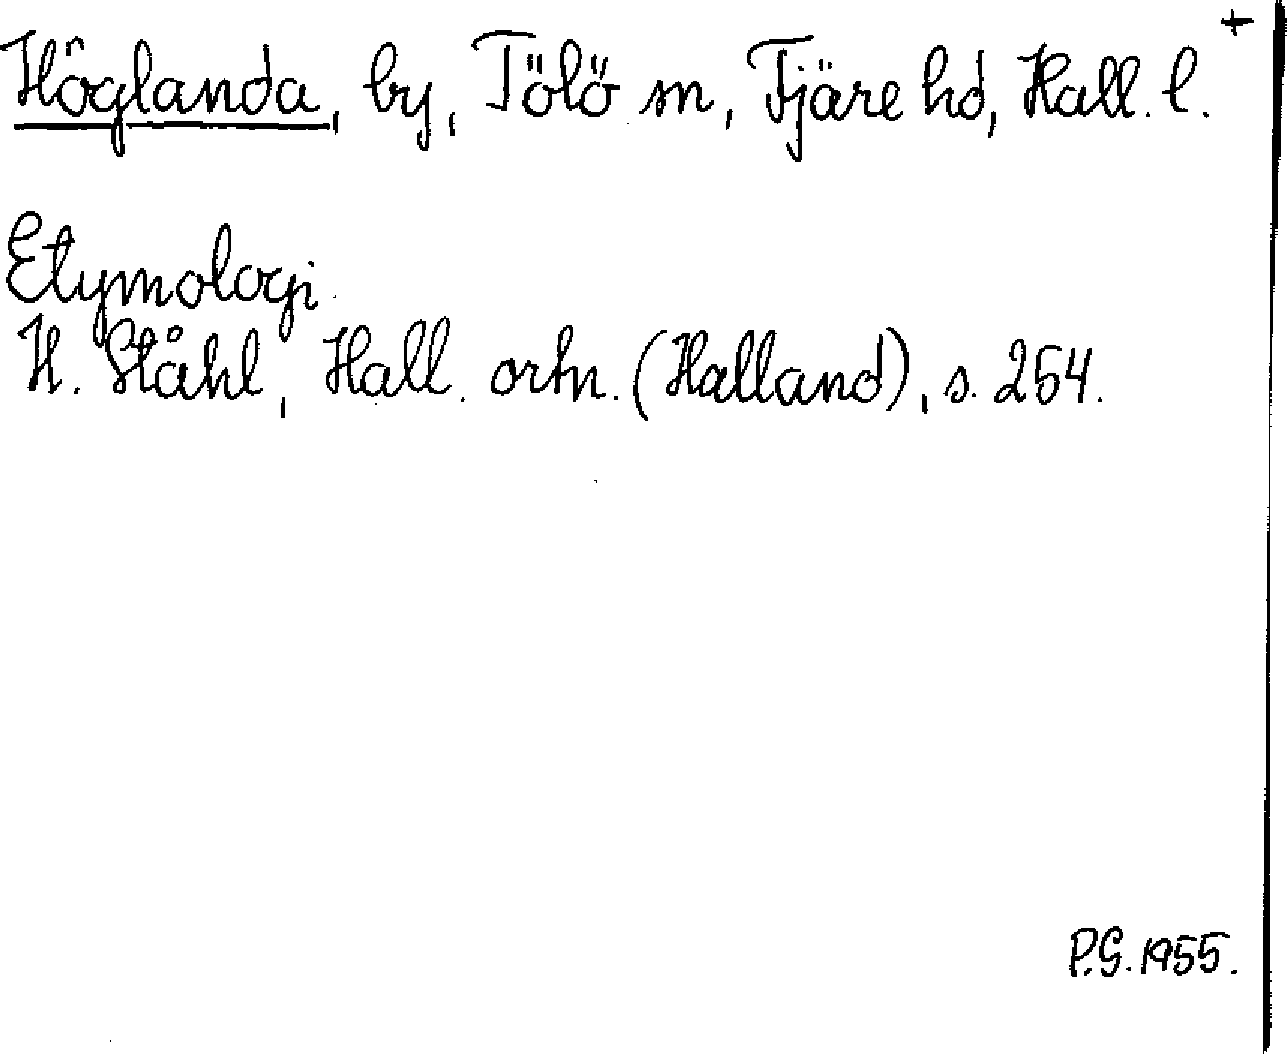 +
Höglanda, by, Tölö sn, Fjäre hd, Hall. l.
Etymologi.
H. Ståhl, Hall. ortn. (Halland), s. 254.
P.G. 1955.